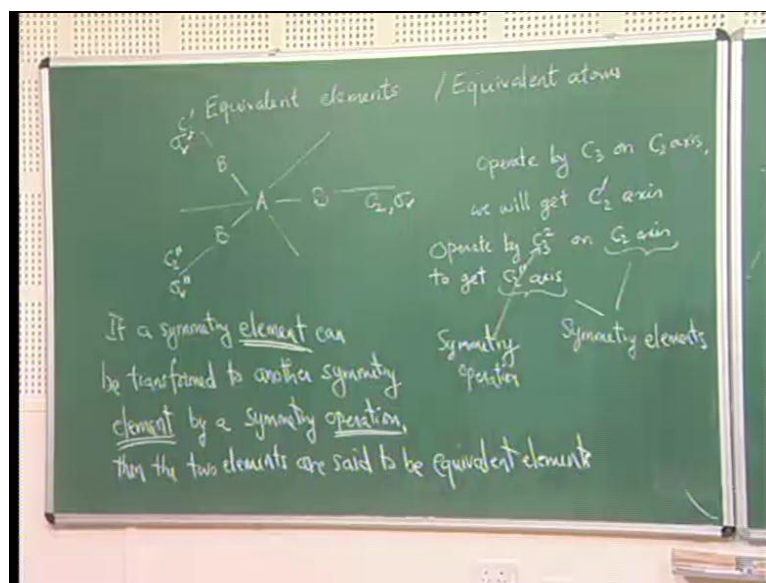 Equivalent elements / Equivalent atoms
C₂'
σᵥ'
B
A
B
C₂, σᵥ
B
C₂"
σᵥ"
Operate by C₃ on C₂ axis,
we will get C₂' axis
Operate by C₃² on C₂ axis
to get C₂" axis
Symmetry operation
Symmetry elements
If a symmetry element can
be transformed to another symmetry
element by a symmetry operation,
then the two elements are said to be equivalent elements